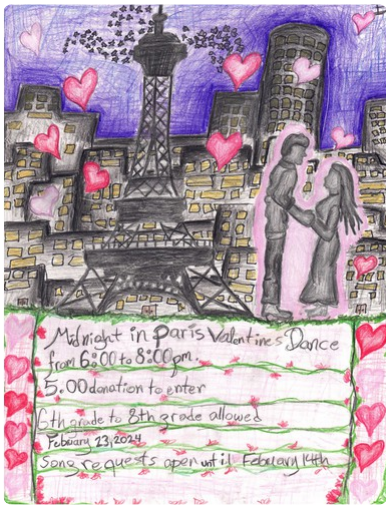 Midnight in Paris Valentines Dance
from 6:00 to 8:00pm.
5.00 donation to enter
6th grade to 8th grade allowed
February 23, 2024
Song requests open until February 14th